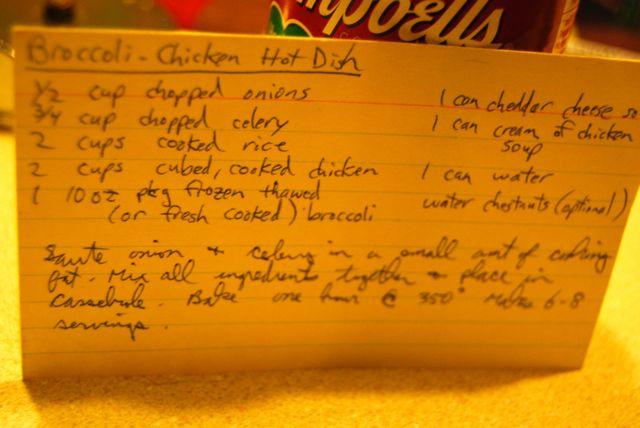 Campbell's
Broccoli - Chicken Hot Dish
1/2 cup chopped onions
3/4 cup chopped celery
2 cups cooked rice
2 cups cubed, cooked chicken
1 10 oz pkg frozen thawed
(or fresh cooked) broccoli
1 can cheddar cheese so
1 can cream of chicken
soup
1 can water
water chestnuts (optional)
Saute onion + celery in a small amt of cooking
fat. Mix all ingredients together + place in
casserole. Bake one hour @ 350° Makes 6-8
servings.